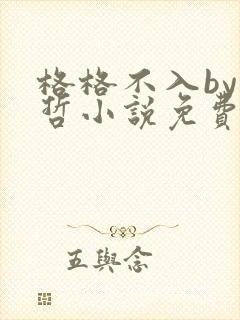 格格不入by
哲小說免費
五與念